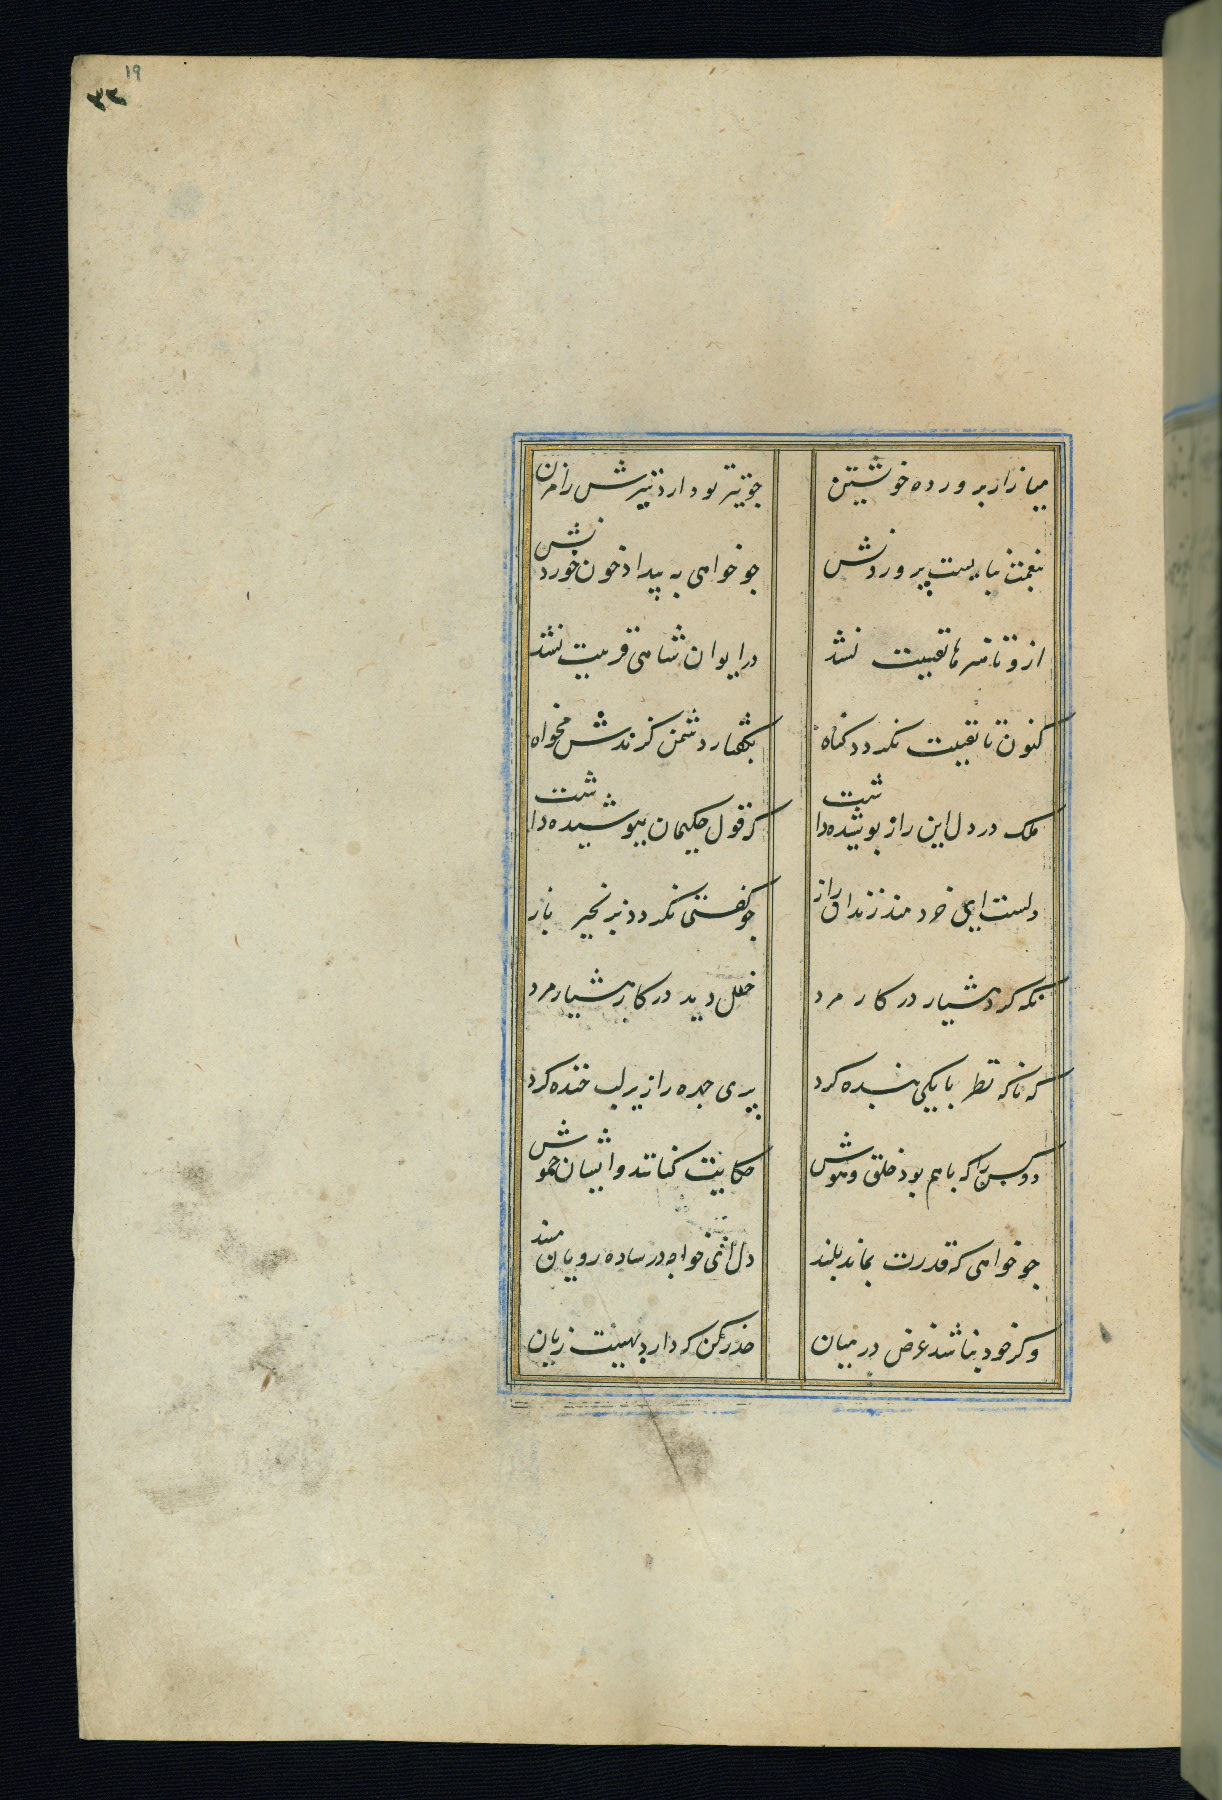 ۱۹
۳۲
میازار پرورده خویشتن چو تیر تو دارد تیرش مزن
بنعمت نبایست پروردنش چو خواهی به بیداد خون خوردنش
ازو تا هنرها یقینت نشد در ایوان شاهی قرینت نشد
کنون تا یقینت نکردد کناه بکفتار دشمن کزندش مخواه
ملک در دل این راز پوشیده داشت که قول حکیمان نیوشیده داشت
دلست ای خردمند زندان راز چو کفتی نکردد بزنجیر باز
نکه کرد هشیار در کار مرد خلل دید در کار هشیار مرد
که ناکه نظر با یکی بنده کرد پری چهره را زیر لب خنده کرد
دو کس را که باهم بود خلق و هوش حکایت کنانند و ایشان خموش
چو خواهی که قدرت بماند بلند دل ای خواجه در ساده رویان مبند
وکر خود نباشد غرض در میان حذر کن که دارد بهیبت زیان